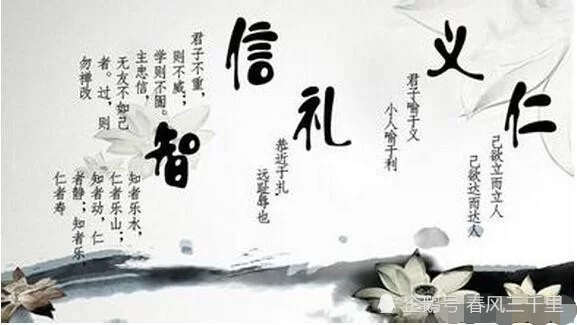 仁
己欲立而立人
己欲达而达人
义
君子喻于义
小人喻于利
礼
恭近于礼，
远耻辱也
信
君子不重，
则不威；
学则不固。
主忠信，
无友不如己
者。过，则
勿禅改
智
知者乐水，
仁者乐山；
知者动，仁
者静；知者乐，
仁者寿
企鹅号 春风三千里